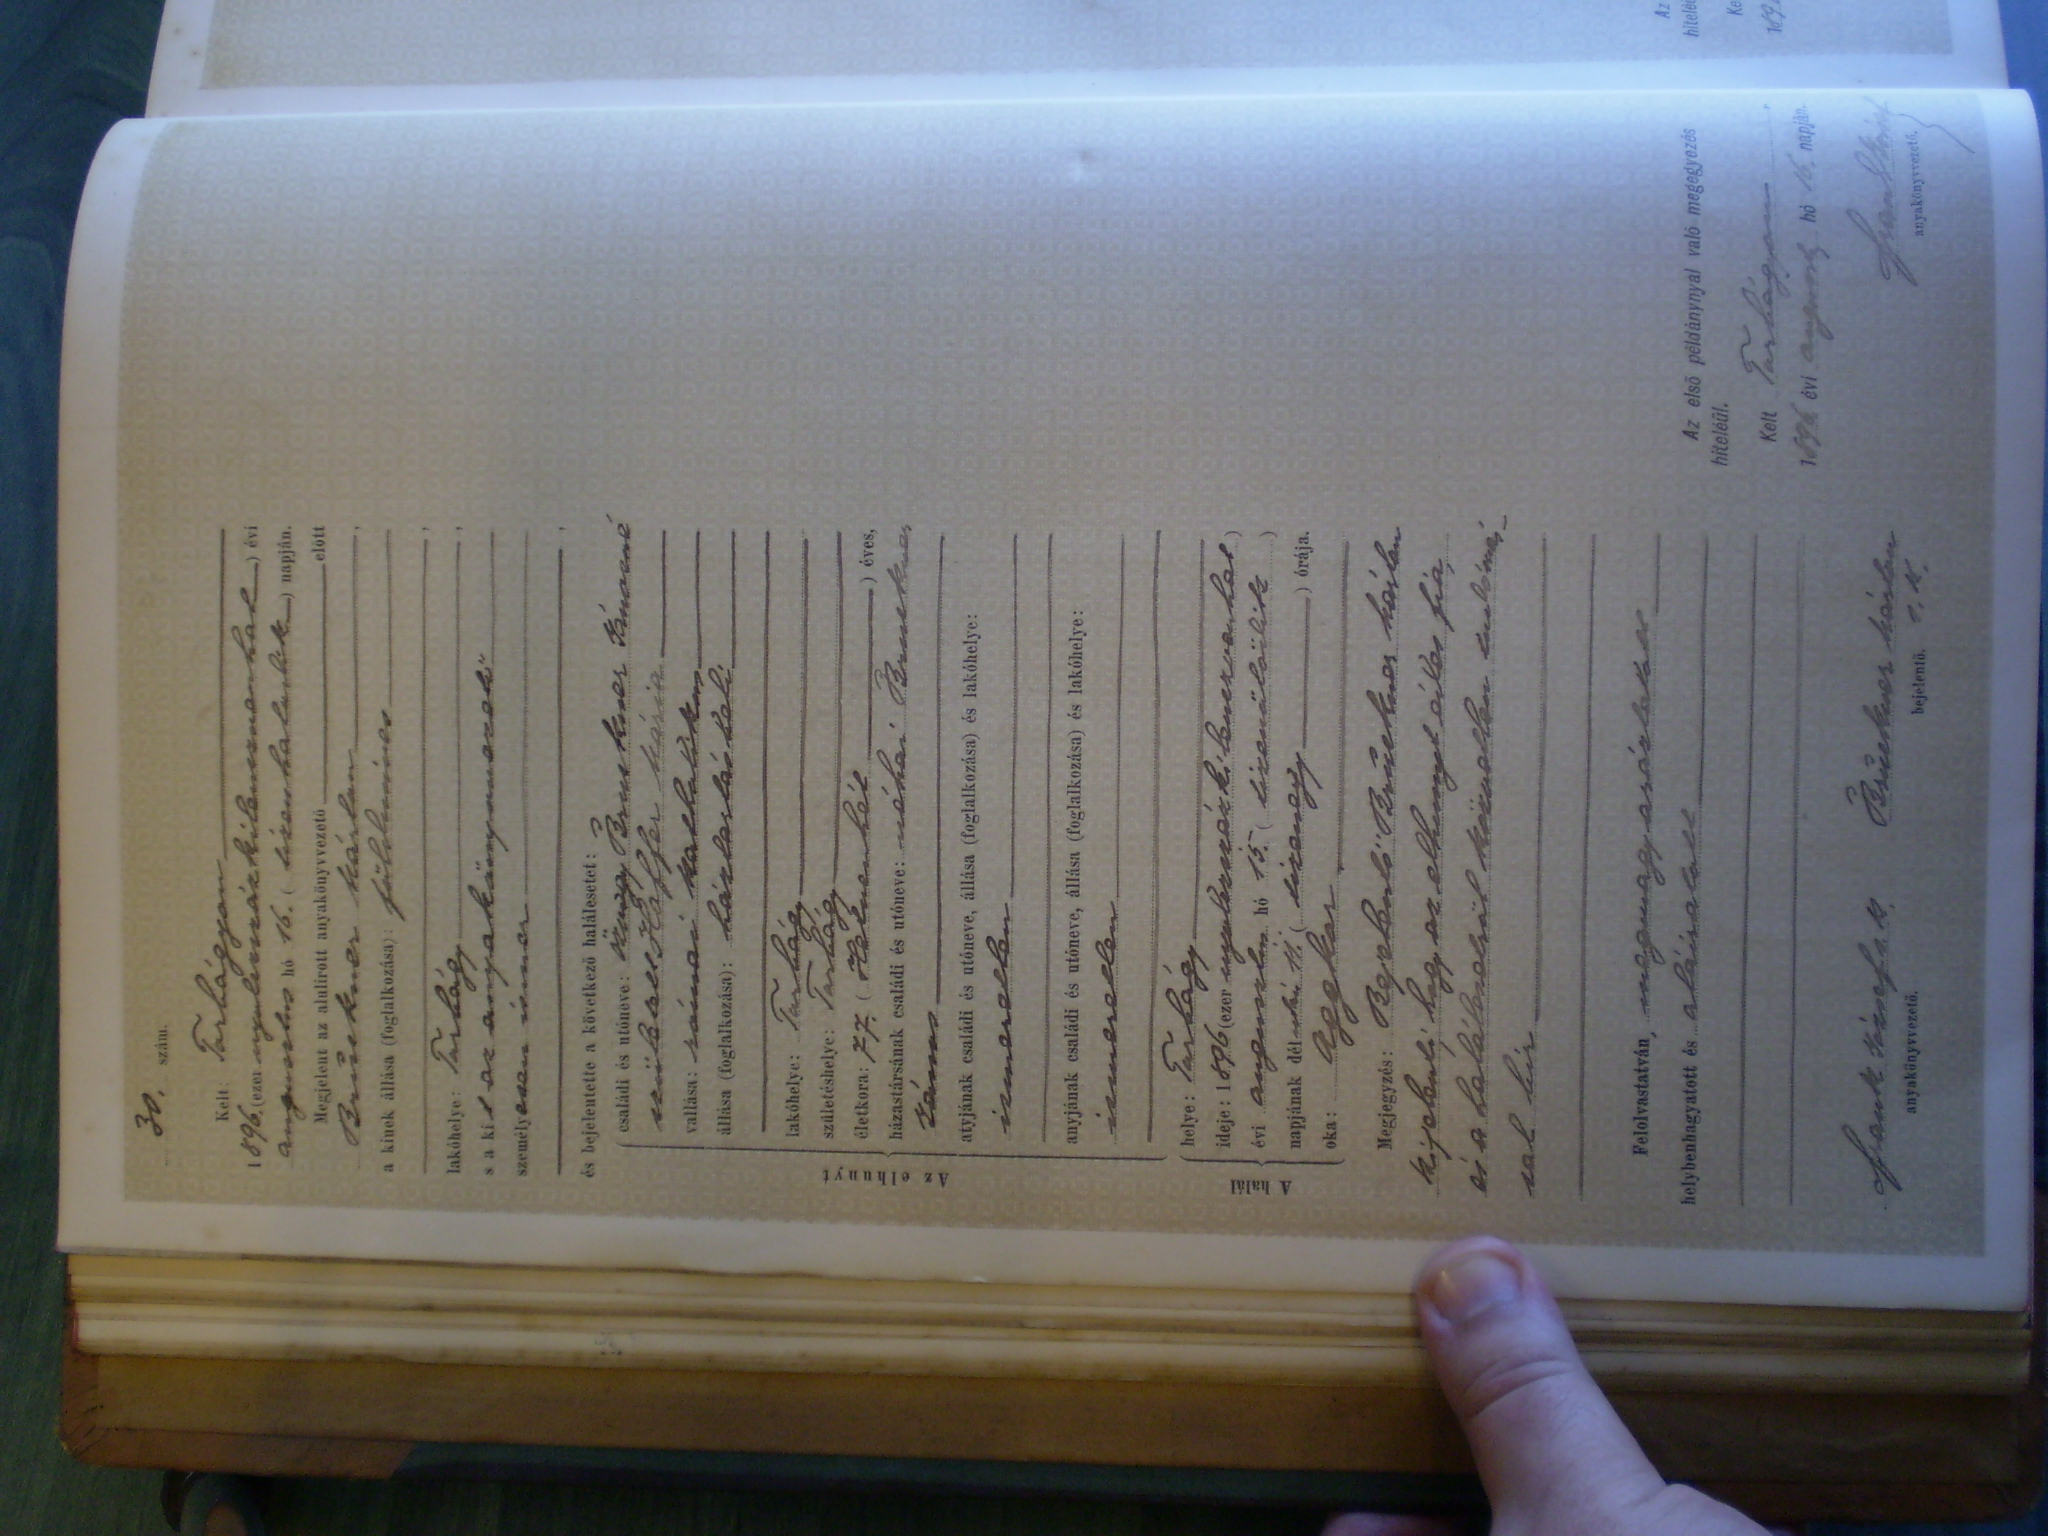 30. szám.
Kelt: Tarhágyon
1896. (ezer nyolczszázkilenczvenhat) évi
augusztus hó 16. (tizenhatodik) napján.
Megjelent az alulirott anyakönyvvezető előtt
Brüekner károlan
a kinek állása (foglalkozása): földmíves
lakóhelye: Tarhágy
s a ki t az anyakönyvvezető
személyesen ismer
és bejelentette a következő halálesetet:
Az elhunyt
családi és utóneve: özvegy Bruekner Jánosné
született Haffer Mária
vallása: római katholikus
állása (foglalkozása): háztartásbeli
lakóhelye: Tarhágy
születéshelye: Tarhágy
életkora: 77. (Hetvenhét) éves,
házastársának családi és utóneve: néhai Bruekner
János
atyjának családi és utóneve, állása (foglalkozása) és lakóhelye:
ismeretlen
anyjának családi és utóneve, állása (foglalkozása) és lakóhelye:
ismeretlen
A halál
helye: Tarhágy
ideje: 1896 (ezer nyolczszázkilenczvenhat)
évi augusztus hó 15. (tizenötödik)
napjának dél után 11. (tizenegy) órája.
oka: Aggkor
Megjegyzés: Bejelentő Brüekner károlan
kijelenti hogy az elhunyt édes fia,
és a halálesetről közvetlen tudomás-
sal bír
Felolvastatván, megmagyaráztatott
helybenhagyatott és aláíratott
anyakönyvvezető.
Brüekner károlan
bejelentő. s. k.
Az első példánynyal való megegyezés
hiteléül.
Kelt Tarhágyon
1896 évi augusztus hó 16. napján.
anyakönyvvezető.
Az
hitelé
Ke
189